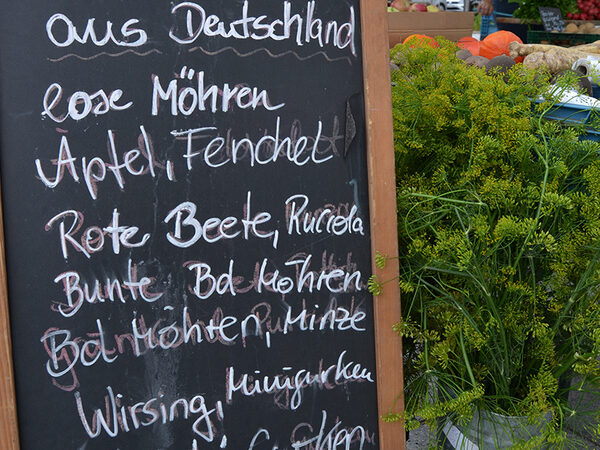 aus Deutschland
lose Möhren
Äpfel, Fenchel
Rote Beete, Rucola
Bunte Bd Möhren
Bd Möhren, Minze
Wirsing, Minigurken